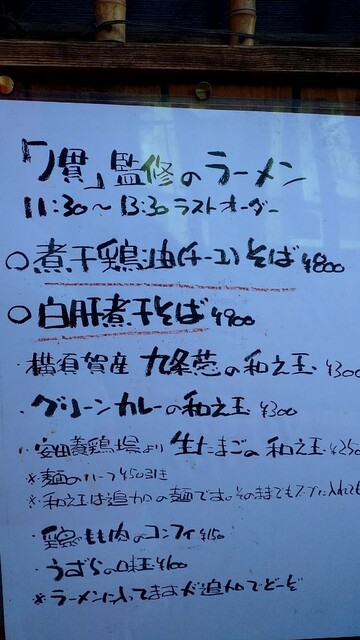 「慣」監修のラーメン
11:30〜13:30ラストオーダー
○煮干鶏油(チーユ)そば ¥800
○白肝煮干そば ¥900
・横須賀産 九条葱の和え玉 ¥300
・グリーンカレーの和え玉 ¥300
・安田養鶏場より 生たまごの和え玉 ¥250
※麺のハーフ ¥50引き
※和え玉は追加の麺です。そのままでもスープに入れても
・鶏もも肉のコンフィ ¥150
・うずらの味玉 ¥100
※ラーメンに入ってますが追加でどーぞ